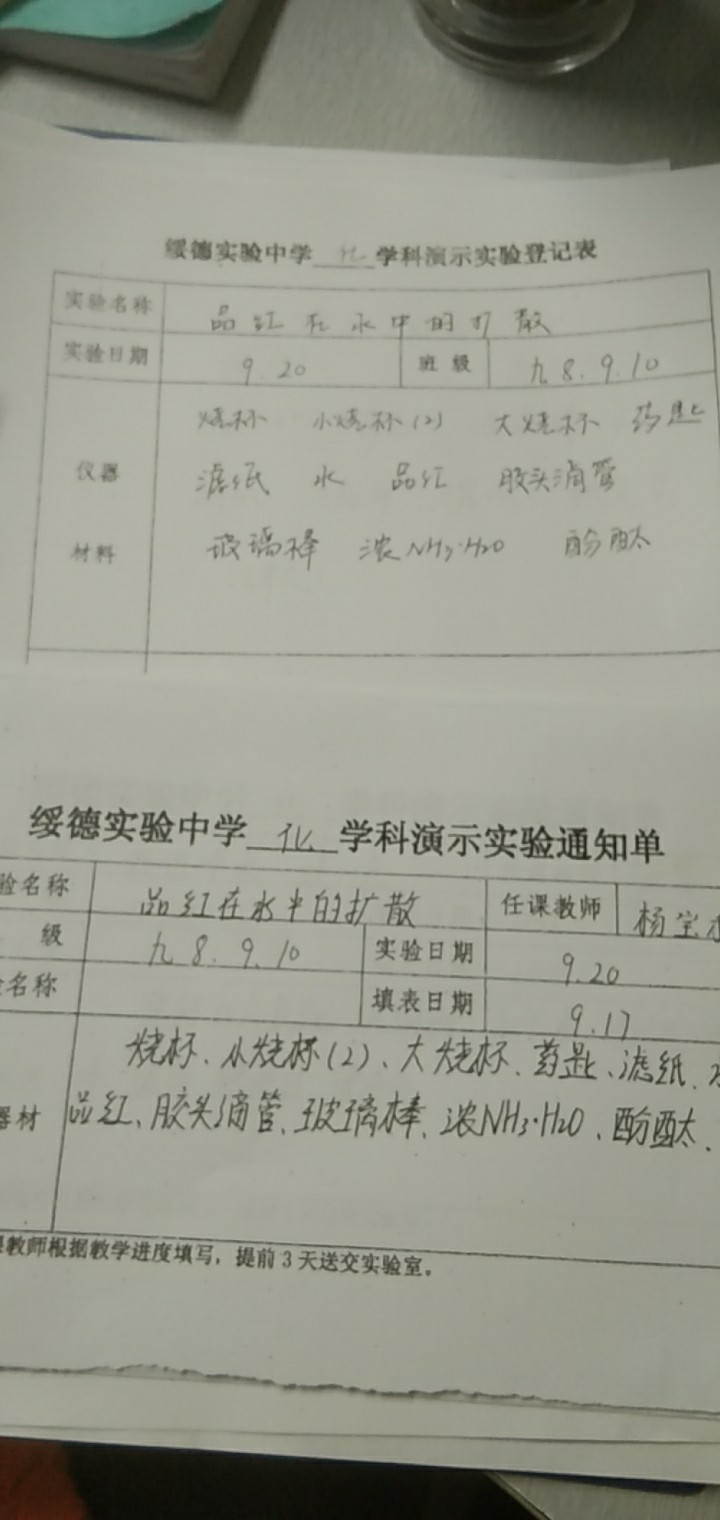 绥德实验中学 化 学科演示实验登记表
实验名称 品红在水中的扩散
实验日期 9.20 班级 九8.9.10
烧杯 小烧杯(2) 大烧杯 药匙
仪器 滤纸 水 品红 胶头滴管
材料 玻璃棒 浓NH3·H2O 酚酞
绥德实验中学 化 学科演示实验通知单
验名称 品红在水中的扩散 任课教师 杨宝
级 九8.9.10 实验日期 9.20
名称 填表日期 9.17
烧杯、小烧杯(2)、大烧杯、药匙、滤纸、
器材 品红、胶头滴管、玻璃棒、浓NH3·H2O、酚酞、
教师根据教学进度填写，提前3天送交实验室。